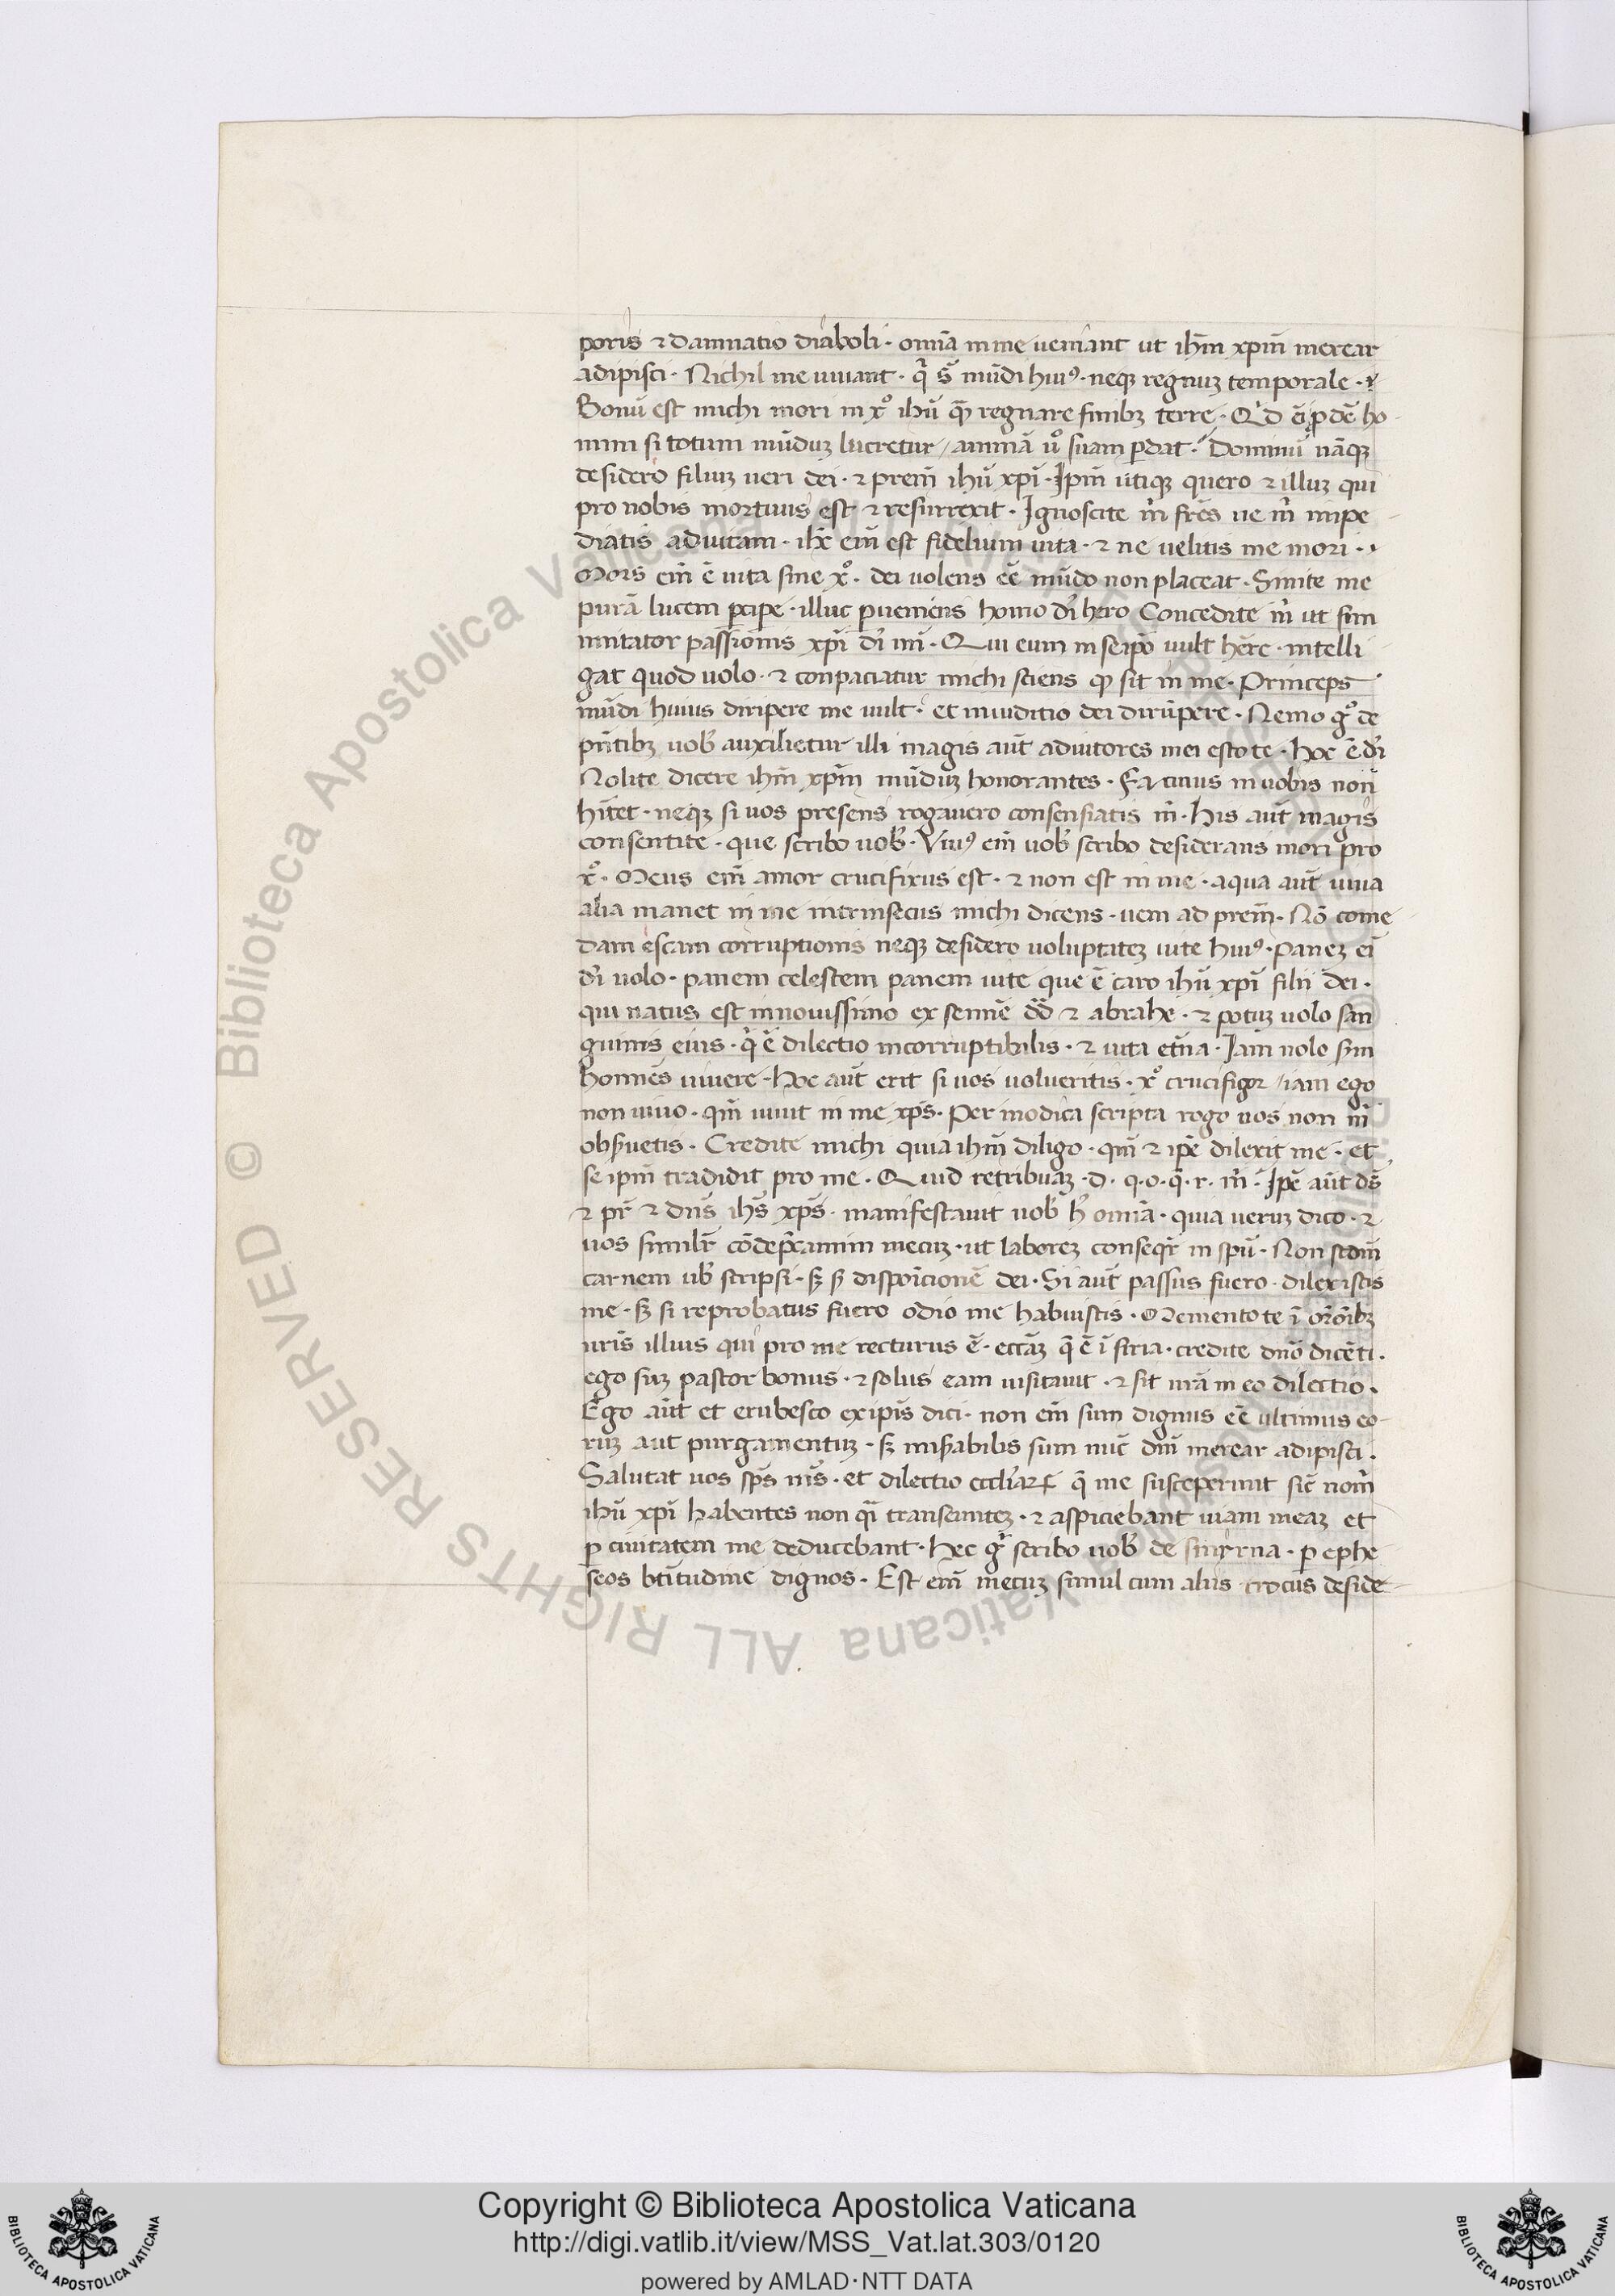 poris ⁊ damnatio diaboli · om̄ia in me veniant ut ih̄m xp̄m merear
adipisci · Nichil me iuvant · q̄ s̄t mūdi huiꝰ · neqꝫ regnuꝫ temporale ·
Bonū est michi mori in x̊ ihū qᷓ regnare finibꝫ terre · Qͥd em̄ ꝓdē ho
mini si totum mūduꝫ lucretur / animā u̇o suam ꝑdat · Dominū nāqꝫ
desidero filiuꝫ veri dei · ⁊ pr̄em ihū xp̄i · Ip̄m utiqꝫ quero ⁊ illuꝫ qui
pro nobis mortuus est ⁊ resurrexit · Ignoscite m̄ fr̄es ne m̄ impe
diatis ad vitam · ih̄c em̄ est fidelium vita · ⁊ ne velitis me mori ·
Mors em̄ ē vita sine x̊ · dei volens eē mūdo non placeat · Sinite me
purā lucem ꝑcipe · illuc ꝑveniens homo di hero Concedite m̄ ut sim
imitator passionis xp̄i di mī · Qui eum in seip̄o vult hēre · intelli
gat quod volo · ⁊ conpaciatur michi sciens qꝫ sit in me · Princeps
mūdi huius diripere me vult · et inviditio dei dirūpere · Nemo gͦ de
pn̄tibꝫ vob̄ auxilietur illi magis aut̄ adiutores mei estote · hoc ē di
Nolite dicere ih̄m xp̄m mūduꝫ honorantes · Facinus in vobis non
hītet · neqꝫ si vos presens rogavero consensiatis m̄ · his aut̄ magis
consentite · que scribo vob̄ · Viuꝰ em̄ vob̄ scribo desiderans mori pro
x̊ · Meus em̄ amor crucifixus est · ⁊ non est in me · aqua aut̄ viva
alia manet in me intrinsecus michi dicens · veni ad pr̄em · Nō come
dam escam corruptionis neqꝫ desidero voluptateꝫ vite huiꝰ · Paneꝫ ei
di volo · panem celestem panem vite que ē caro ihū xp̄i filii dei ·
qui natus est in novissimo ex semīe dd̄ ⁊ abrahe · ⁊ potuꝫ volo san
guinis eius · q̄ ē dilectio incorruptibilis · ⁊ vita et̄na · Iam nolo s̄m
homēs vivere · hoc aut̄ erit si vos volueritis · x̊ crucifigor / iam ego
non vivo · qm̄ vivit in me xp̄s · Per modica scripta rogo vos non m̄
obs̄vetis · Credite michi quia ih̄m diligo · qm̄ ⁊ ip̄e dilexit me · et
se ip̄m tradidit pro me · Quid retribuaꝫ · d · q · o · q̄ · r · m̄ · Ip̄e aut̄ ds̄
⁊ pr̄ ⁊ dn̄s ih̄s xp̄s · manifestavit vob̄ h̄ om̄ia · quia veruꝫ dico · ⁊
vos simil̄r cōdepcamini mecuꝫ · ut laboreꝫ conseqr̄ in spū · Non scdm̄
carnem vb̄ scripsi · sꝫ s̄ dispoīcionē dei · Si aut̄ passus fuero · dilexistis
me · sꝫ si reprobatus fuero odio me habuistis · Mementote ī or̄oībꝫ
vris illius qui pro me recturus ē · ecc̄aꝫ q̄ ē ī siria · credite dn̄o dicēti ·
ego suꝫ pastor bonus · ⁊ solus eam visitavit · ⁊ sit vrā in eo dilectio ·
Ego aut̄ et erubesco ex ip̄is dici · non em̄ sum dignus eē ultimus eo
ruꝫ aut purgamentuꝫ · sꝫ mis̄abilis sum nūc dm̄ merear adipisci ·
Salutat vos sp̄s ms̄ · et dilectio eccl̄iaꝝ q̄ me susceperunt sic̄ nom̄
ihū xp̄i habentes non qᷓi transeunteꝫ · ⁊ aspiciebant viam meaꝫ et
ꝑ civitatem me deducebant · hec g̊ scribo vob̄ de smyrna · ꝑ ephe
seos bt̄itudine dignos · Est em̄ mecuꝫ simul cum aliis crocus deside
Copyright © Biblioteca Apostolica Vaticana
http://digi.vatlib.it/view/MSS_Vat.lat.303/0120
powered by AMLAD·NTT DATA